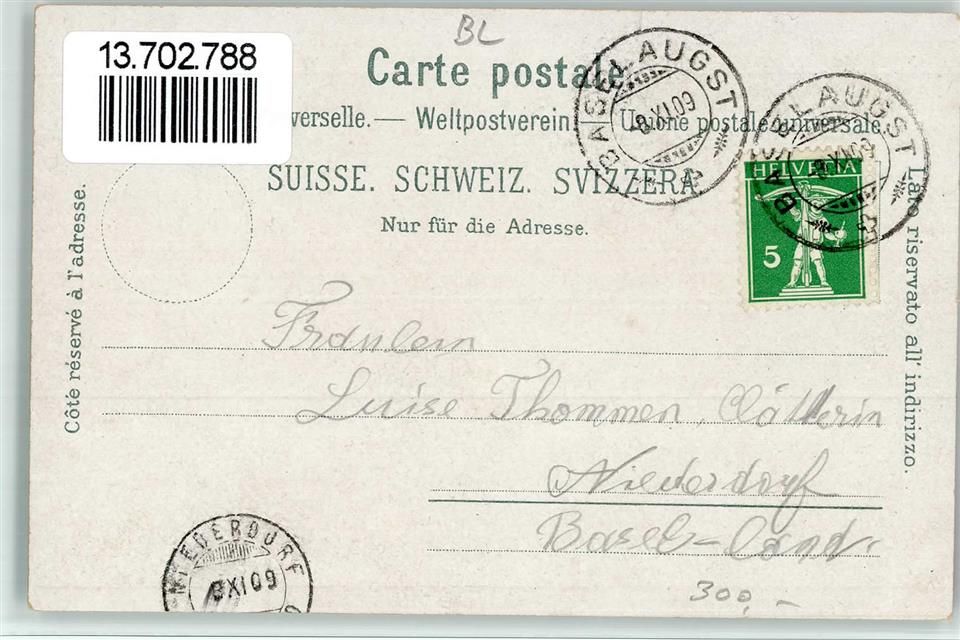 BL
13.702.788
Carte postale.
verselle. — Weltpostverein. Unione postale universale.
SUISSE. SCHWEIZ. SVIZZERA
Nur für die Adresse.
BASEL AUGST
8.XI.09
BASEL AUGST
XI.09
HELVETIA
5
Côté réservé à l'adresse.
Lato riservato all' indirizzo.
Fräulein
Luise Thommen,
Niederdorf
Basel-Land.
NIEDERDORF
8XI09
300,-